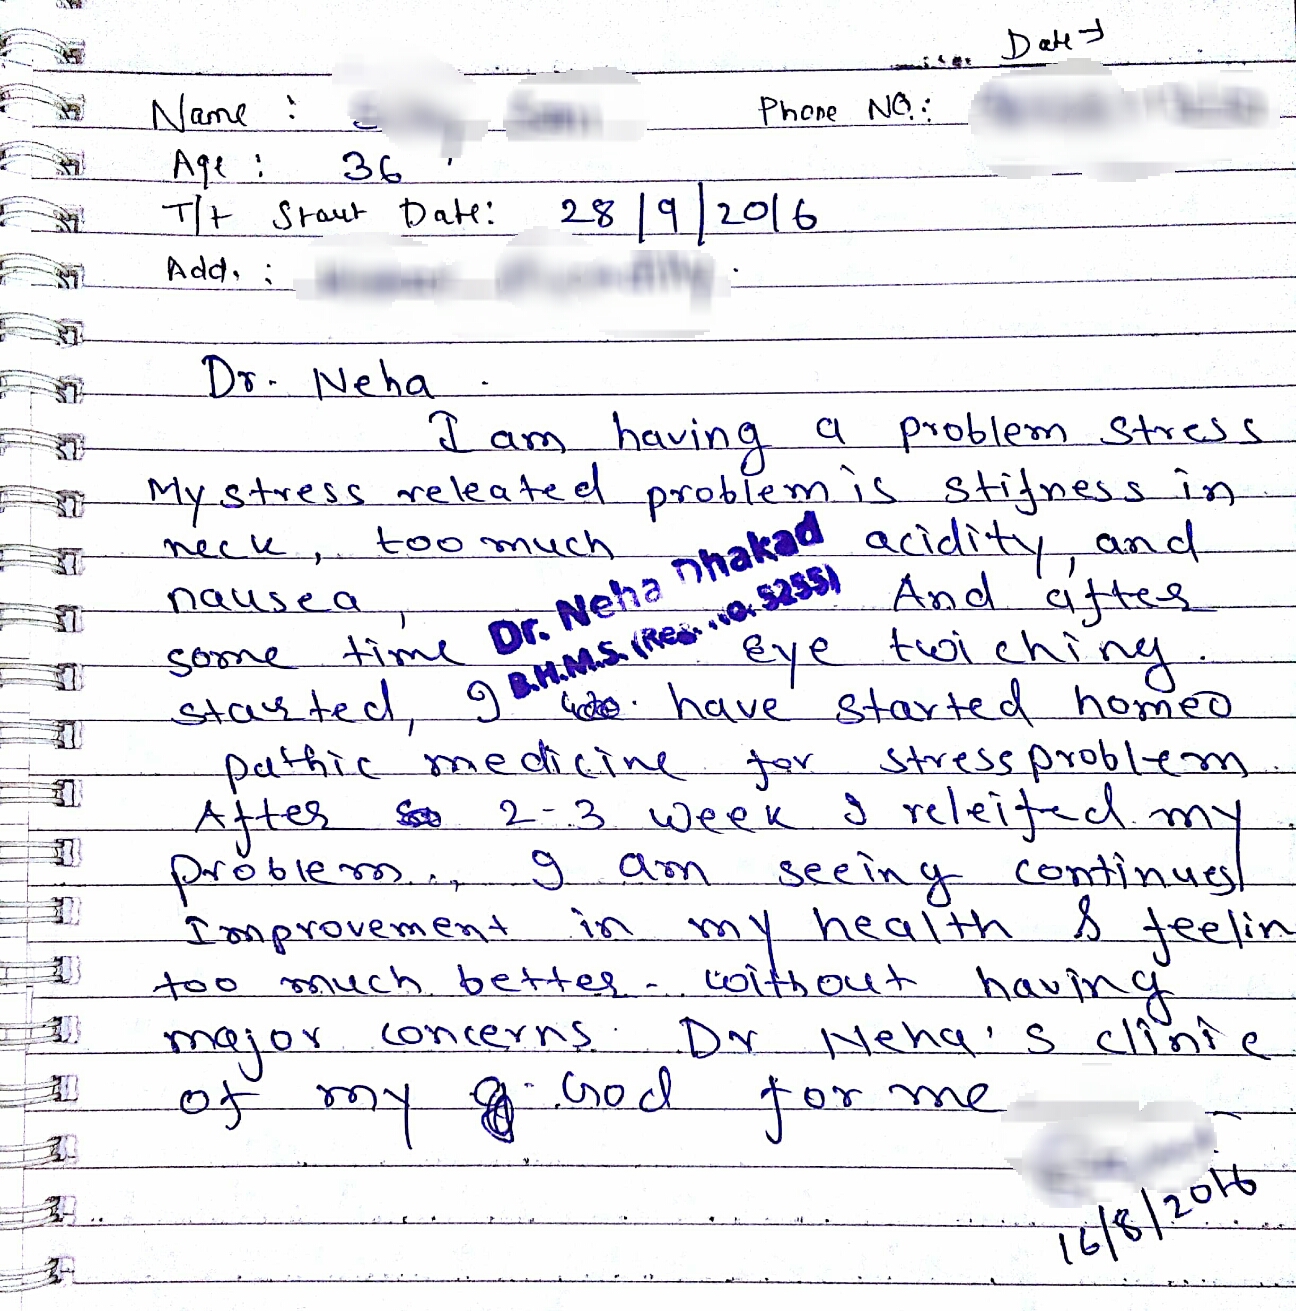 Date
Name :
Phone NO.:
Age : 36
T/t Staut Date: 28/9/2016
Add. :
Dr. Neha .
I am having a problem stress
My stress releated problem is stifness in
neck, too much acidity, and
nausea, And after
Dr. Neha Dhakad
B.H.M.S. (Reg. no. 5255)
some time eye twiching.
started, I have started homeo
pathic medicine for stress problem.
After 2-3 week I releifed my
problem., I am seeing continues
Improvement in my health & feelin
too much better. without having
major concerns. Dr Neha's clinic
of my God for me
16/8/2016